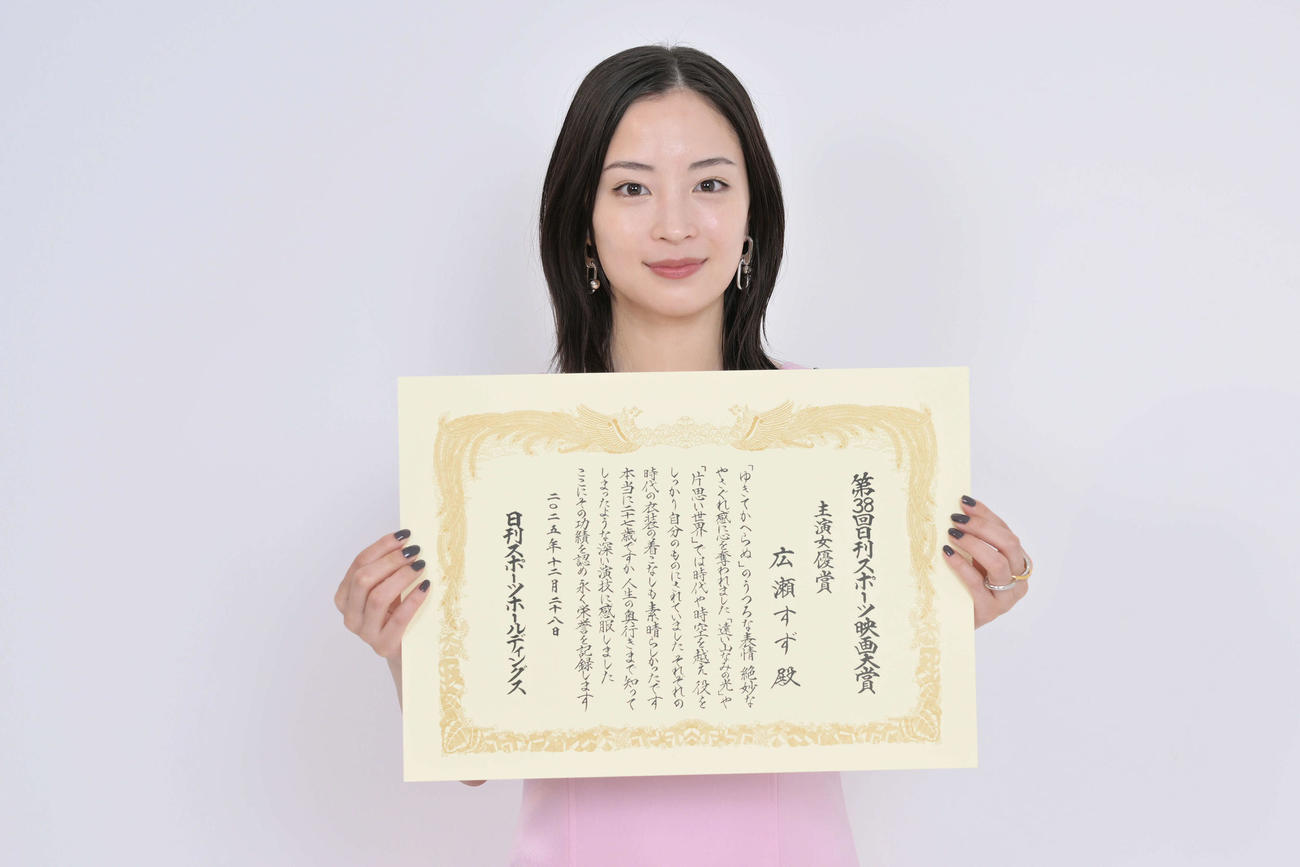 第38回日刊スポーツ映画大賞
主演女優賞
広瀬すず殿
「ゆきてかへらぬ」のうつろな表情 絶妙な
やさぐれ感に心を奪われました 「遠い山なみの光」や
「片思い世界」では時代や時空を越え 役を
しっかり自分のものにされていました それぞれの
時代の衣装の着こなしも素晴らしかったです
本当に二十七歳ですか 人生の奥行きまで知って
しまったような深い演技に感服しました
ここにその功績を認め 永く栄誉を記録します
二〇二五年十二月二十八日
日刊スポーツホールディングス